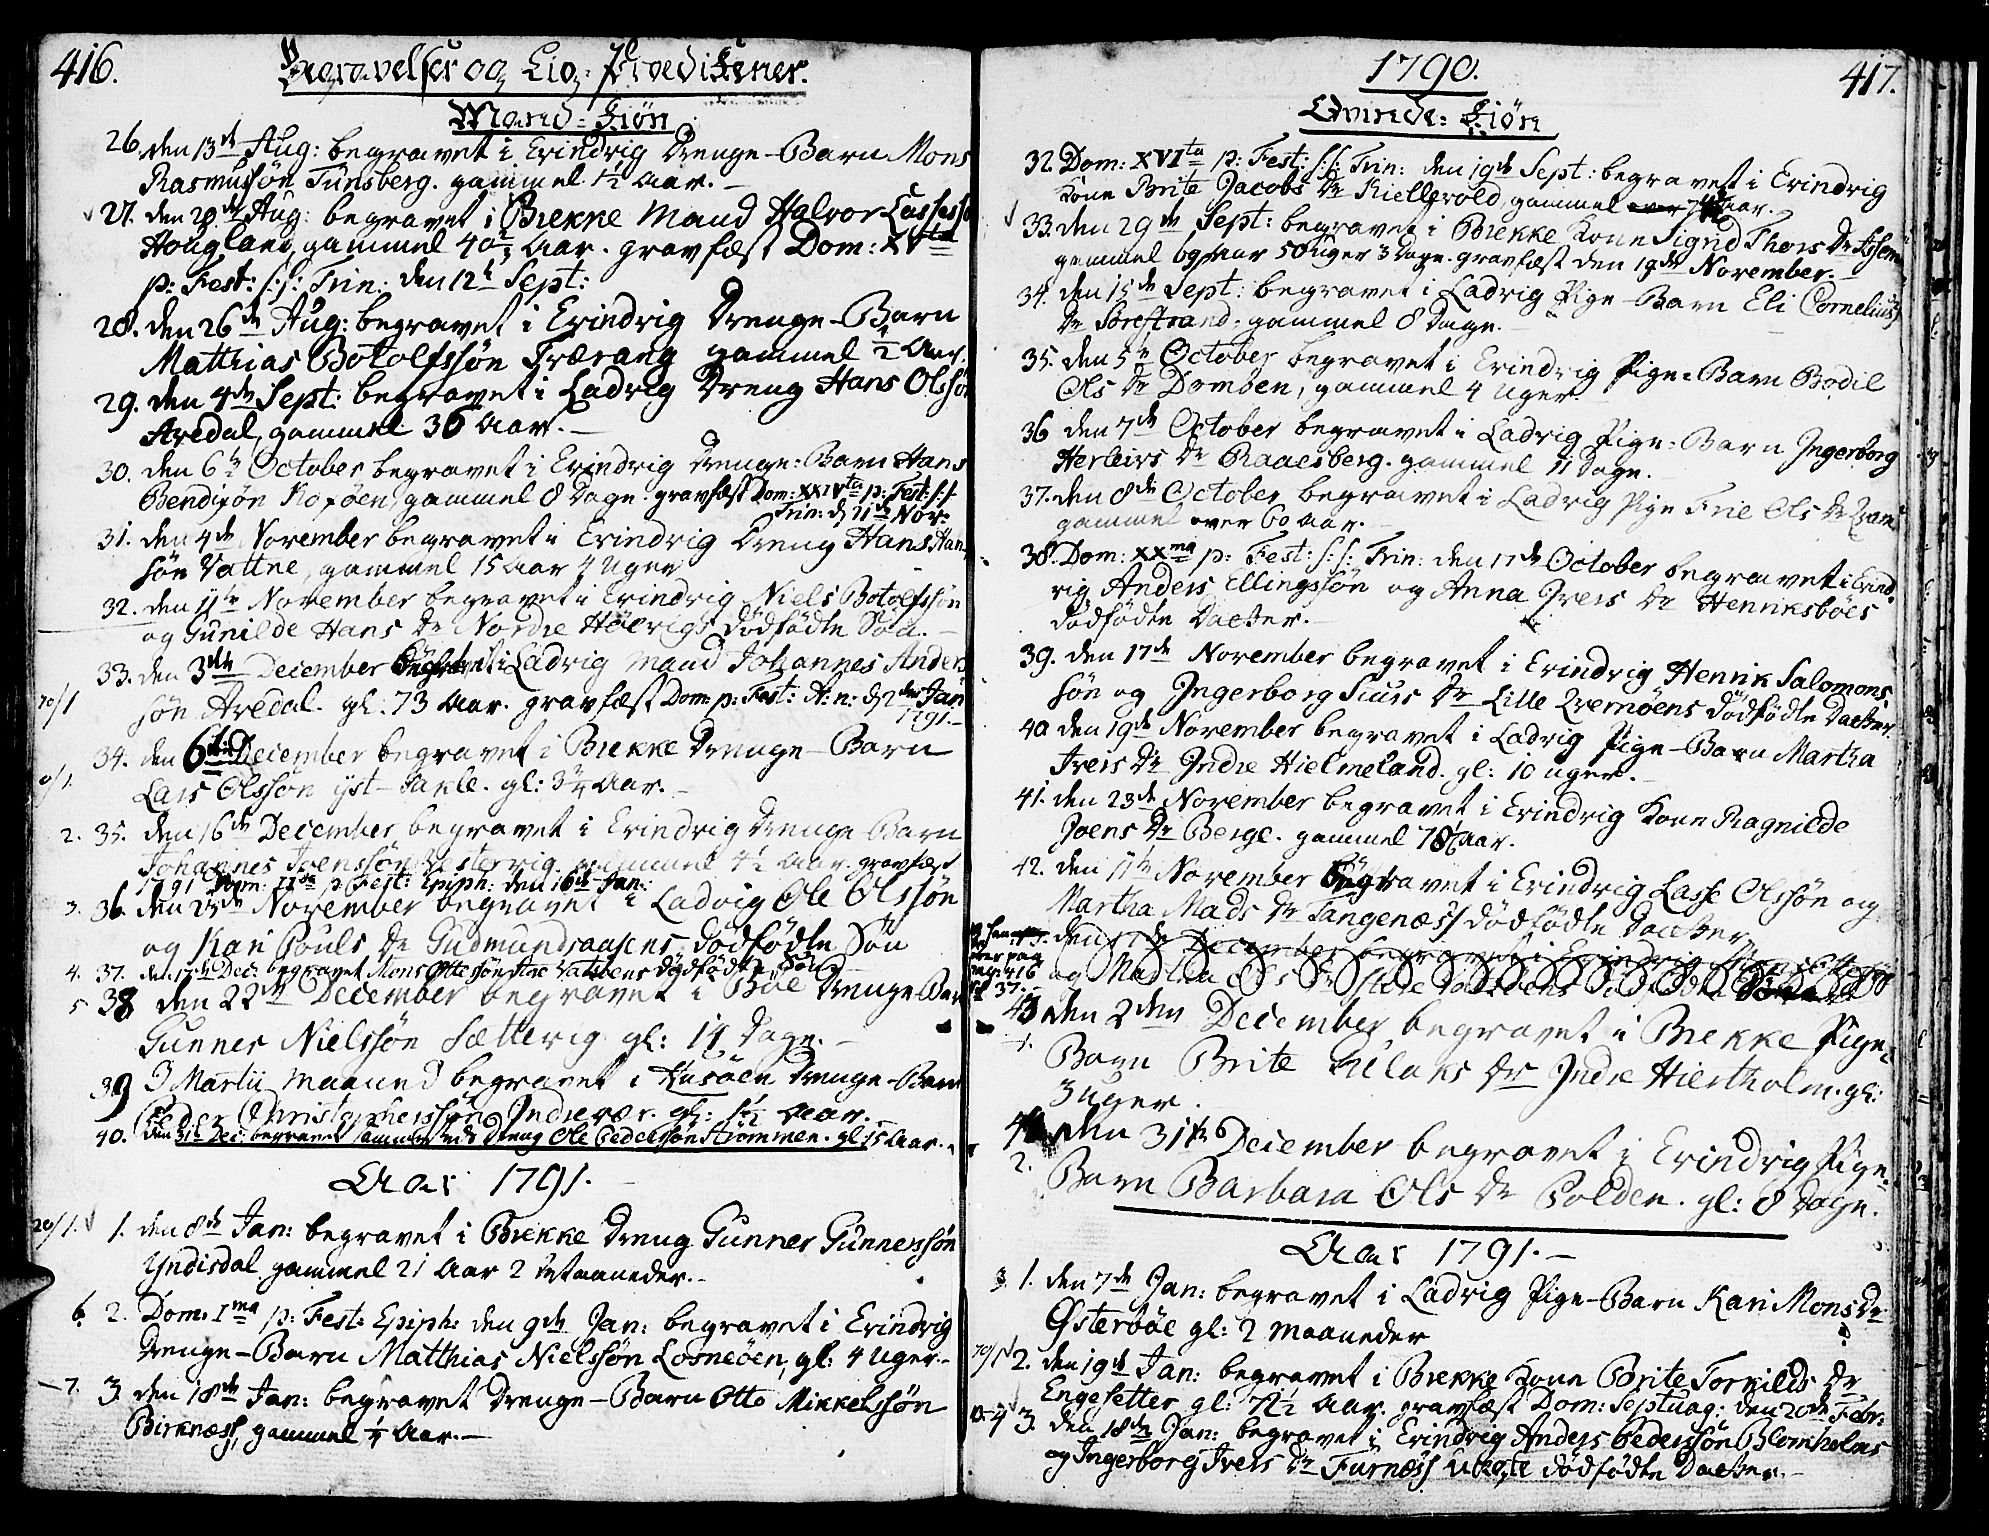 416.
Begravelser og Liig-Prædikener.
Mand-Kiøn
26. den 13de Aug: begravet i Evindvig Drenge-Barn Mons
Rasmussøn Tunsberg. gammel 1½ Aar.
27. den 20de Aug: begravet i Brekke Mand Halvor Lassessøn
Hougland, gammel 40 Aar. gravfæst Dom: XVta
p: Fest: s:s: Trin: den 12te Sept:
28. den 26de Aug: begravet i Evindvig Drenge-Barn
Matthias Botolfssøn Trærang gammel ½ Aar.
29. den 4de Sept: begravet i Ladvig Dreng Hans Olssøn
Aredal, gammel 36 Aar.
30. den 6te October begravet i Evindvig Drenge-Barn Hans
Bendixøn Koxøen, gammel 8 Dage. gravfæst Dom: XXIVta p: Fest: s:s:
Trin: d: 11te Nov:
31. den 4de November begravet i Evindvig Dreng Hans Han-
søn Vattne, gammel 15 Aar 4 Uger
32. den 11te November begravet i Evindvig Niels Botolfssøn
og Gunilde Hans Dr Nordre Høevigs dødfødte Søn.
33. den 3die December begravet i Ladvig Mand Johannes Anders
70/1 søn Aredal. gl: 73 Aar. gravfæst Dom: p: Fest: A: n: d: 2den Jan
1791.
34. den 6te December begravet i Brekke Drenge-Barn
0/1. Lars Olssøn yst-Takle. gl: 3¼ Aar.
2. 35. den 16de December begravet i Evindvig Drenge-Barn
Johannes Joenssøn Østervig gammel 4½ Aar. gravfæst
1791 Dom: IIda p: Fest: Epiph: den 16de Jan:
3. 36. den 23de November begravet i Ladvig Ole Olssøn
og Kari Pouls Dr Gudmundraasens dødfødte Søn
4. 37. den 17de Dec: begravet Mons Ottessøn Store Vatsbens dødfødte Søn
5 38 den 22de December begravet i Bøe Drenge-Barn
Gunner Nielssøn Sættevig gl: 14 Dage.
39 I Martii Maaned begravet i Husøen Drenge-Barn
Peder Christophersøn Indrevær. gl: 1½ Aar.
40. den 31te Dec: begravet sammesteds Dreng Ole Pederssøn Strømmen. gl: 15 Aar.
Aar 1791.
20/1. 1. den 8de Jan: begravet i Brekke Dreng Gunner Gunnerssøn
Yndisdal gammel 21 Aar 2 Maaneder.
6. 2. Dom: Ima p: Fest: Epiph: den 9de Jan: begravet i Evindvig
Drenge-Barn Matthias Nielssøn Losneøen, gl: 4 Uger.
7. 3. den 18de Jan: begravet Drenge-Barn Otto Mikkelssøn
Birknæss, gammel ¼ Aar.
1790.
417.
Qvinde-Kiøn
32. Dom: XVIta p: Fest: s:s: Trin: den 19de Sept: begravet i Evindvig
Kone Brite Jacobs Dr Kiellevold, gammel Aar.
33. den 29de Sept: begravet i Brekke Kone Sigrid Thors Dr
gammel 69 Aar 50 Uger 3 Dage. gravfæst den 19de November.
34. den 15de Sept: begravet i Ladvig Pige-Barn Eli Cornelius
Dr Brestrand, gammel 8 Dage.
35. den 5te October begravet i Evindvig Pige-Barn Bodil
Ols Dr Dombøen, gammel 4 Uger.
36 den 7de October begravet i Ladvig Pige-Barn Ingerborg
Herleivs Dr Raaesberg. gammel 11 Dage.
37. den 8de October begravet i Ladvig Pige Frie Ols Dr
gammel over 60 Aar.
38. Dom: XXma p: Fest: s:s: Trin: den 17de October begravet i Evind-
vig Anders Ellingssøn og Anna Ivers Dr Henriksbøes
dødfødte Datter.
39. den 17de November begravet i Evindvig Henrik Salomons
søn og Ingerborg Siurs Dr Lille Qvernøens dødfødte Datter.
40. den 19de November begravet i Ladvig Pige-Barn Martha
Ivers Dr Indre Hielmeland. gl: 10 Uger.
41. den 23de November begravet i Evindvig Kone Ragnilde
Joens Dr Berge. gammel 78 Aar.
42. den 11te November begravet i Evindvig Lasse Olssøn og
Martha Mads Dr Tangenæss dødfødte Datter
43. den 17de December begravet i Evindvig Mons
og Martha
43 den 2den December begravet i Brekke Pige-
1. Barn Brite Aslaks Dr Indre Hiertholm. gl:
3 Uger.
44. den 31te December begravet i Evindvig Pige-
2. Barn Barbara Ols Dr Polden. gl: 8 Dage.
Aar 1791.
3. 1. den 7de Jan: begravet i Ladvig Pige-Barn Kari Mons Dr
Østerbøe gl: 2 Maaneder
70/1 2. den 19de Jan: begravet i Brekke Kone Brite Torkilds Dr
Engesetter gl: 72½ Aar. gravfæst Dom: Septuag: den 20de Febr:
4 3. den 18de Jan: begravet i Evindvig Anders Pederssøn Blomholms
og Ingerborg Ivers Dr Furnæss uægte dødfødte Datter.